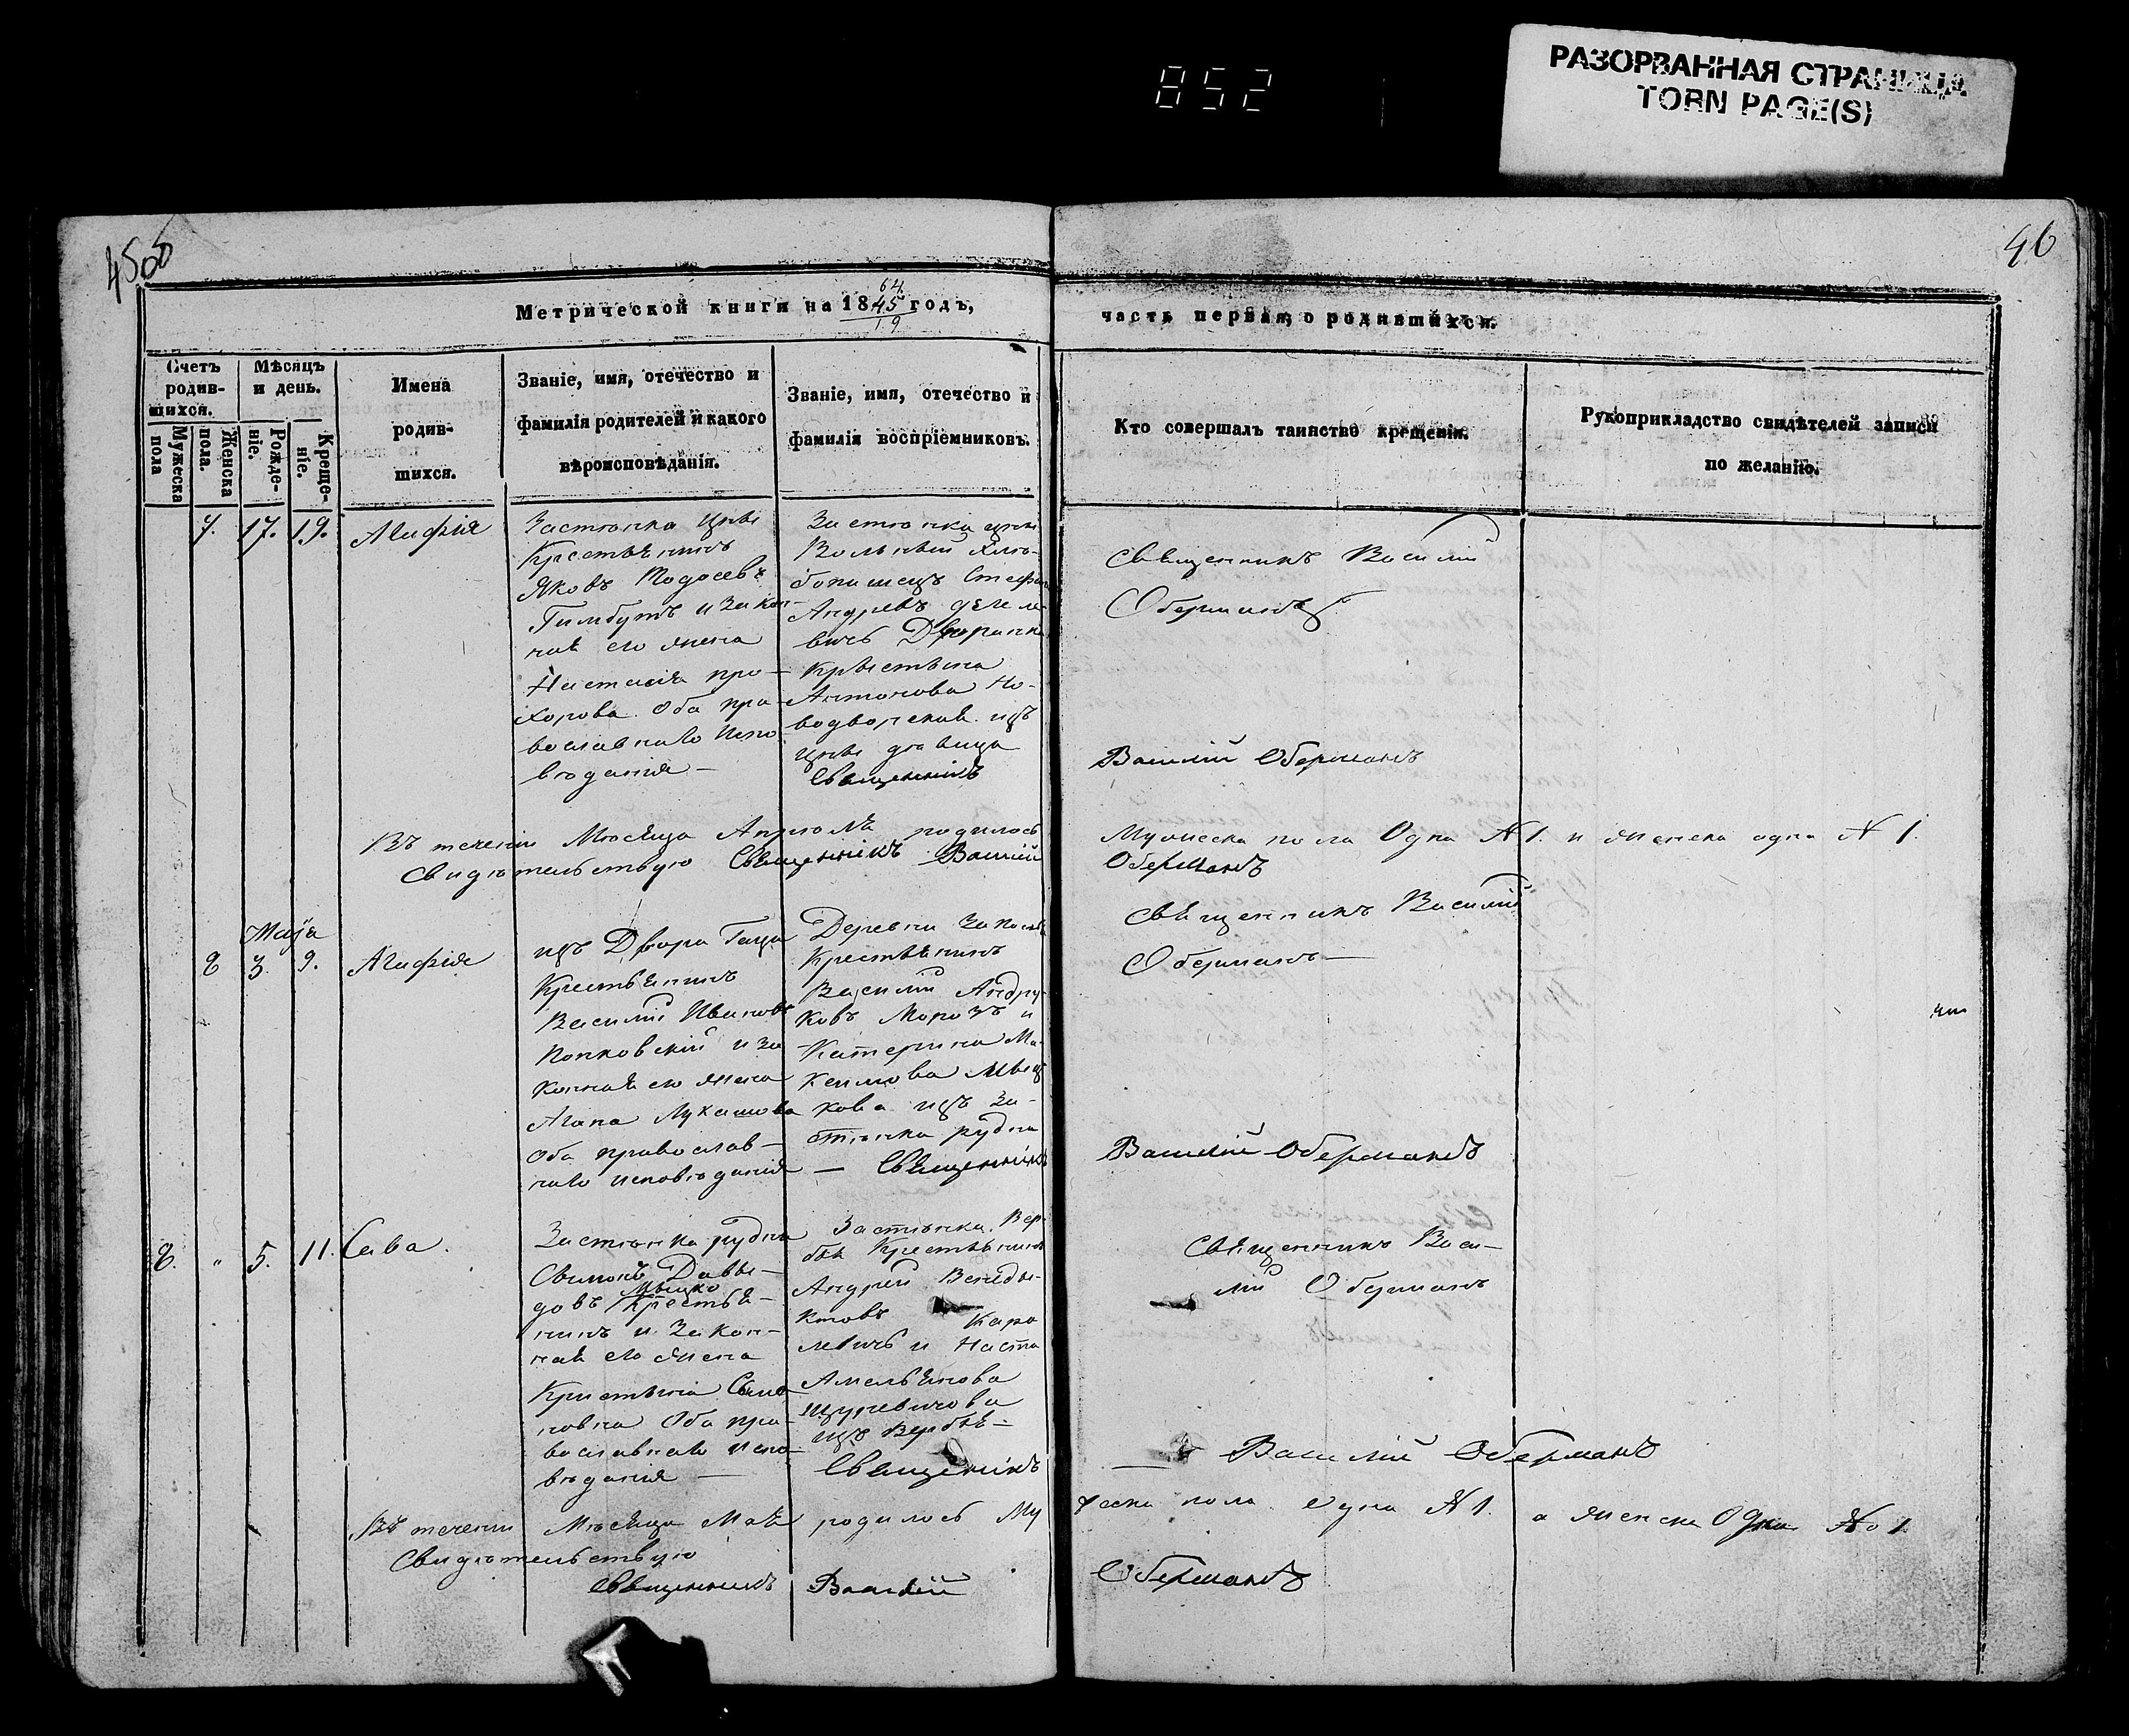 852
РАЗОРВАННАЯ СТРАНИЦА
TORN PAGE(S)
46
Метрической книги на 1845 годъ,
64
19
часть первая, о родившихся.
Счетъ родив-шихся.
Мужеска пола
Женска пола.
Мѣсяцъ и день.
Рожде-ніе.
Креще-ніе.
Имена
родив-
шихся.
Званіе, имя, отечество и
фамилія родителей и какого
вѣроисповѣданія.
Званіе, имя, отечество и
фамилія воспріемниковъ.
Кто совершалъ таинство крещенія.
Рукоприкладство свидѣтелей записи
по желанію.
7. 17. 19. Агафія
Застѣнка
Крестьянинъ
Яковъ
и закон-
ная его жена
Настасія Про-
хорова Оба пра-
вославнаго испо-
вѣданія —
Застѣнка
Вольный хлѣ-
бопашецъ Стефанъ
Андреевъ
вичь Дворянка
Крыстына
Антонова Но-
водворская изъ
дѣвица
Священникъ
Священникъ Василій
Оберманъ
Василій Оберманъ
Въ теченіи Мѣсяца Апрѣля родилось
Мужеска пола Одна N 1. и женска одна N 1.
Свидѣтельствую Священникъ Василій
Оберманъ
Маія
8 3. 9. Агафія
изъ Двора
Крестьянинъ
Василій Ивановъ
Попковскій и за
конная его жена
Агапа Лукашова
Оба православ-
наго исповѣданія
Деревни
Крестьянинъ
Василій Андру-
ковъ Морозъ и
Катерина Ма-
ксимова
кова изъ За-
стѣнка Рудни
— Священникъ
Священникъ Василій
Оберманъ —
Василій Оберманъ
8. " 5. 11. Сава.
Застѣнка Рудни
Давы-
Мышко
довъ Крестья-
нинъ и Закон-
ная его жена
Кристына
новна Оба пра-
вославнаго испо-
вѣданія —
Застѣнка Вер-
бы Крестьянинъ
Андрей Венеды-
ктовъ Каро
левичь и Наста
Амельянова
изъ Вербы —
Священникъ
Священникъ Васи-
лій Оберманъ
Василій Оберманъ
Въ теченіи Мѣсяца Мая родилось Му
жеска пола Одна N 1. а женска Одна No 1
Свидѣтельствую
Священникъ Василій
Оберманъ